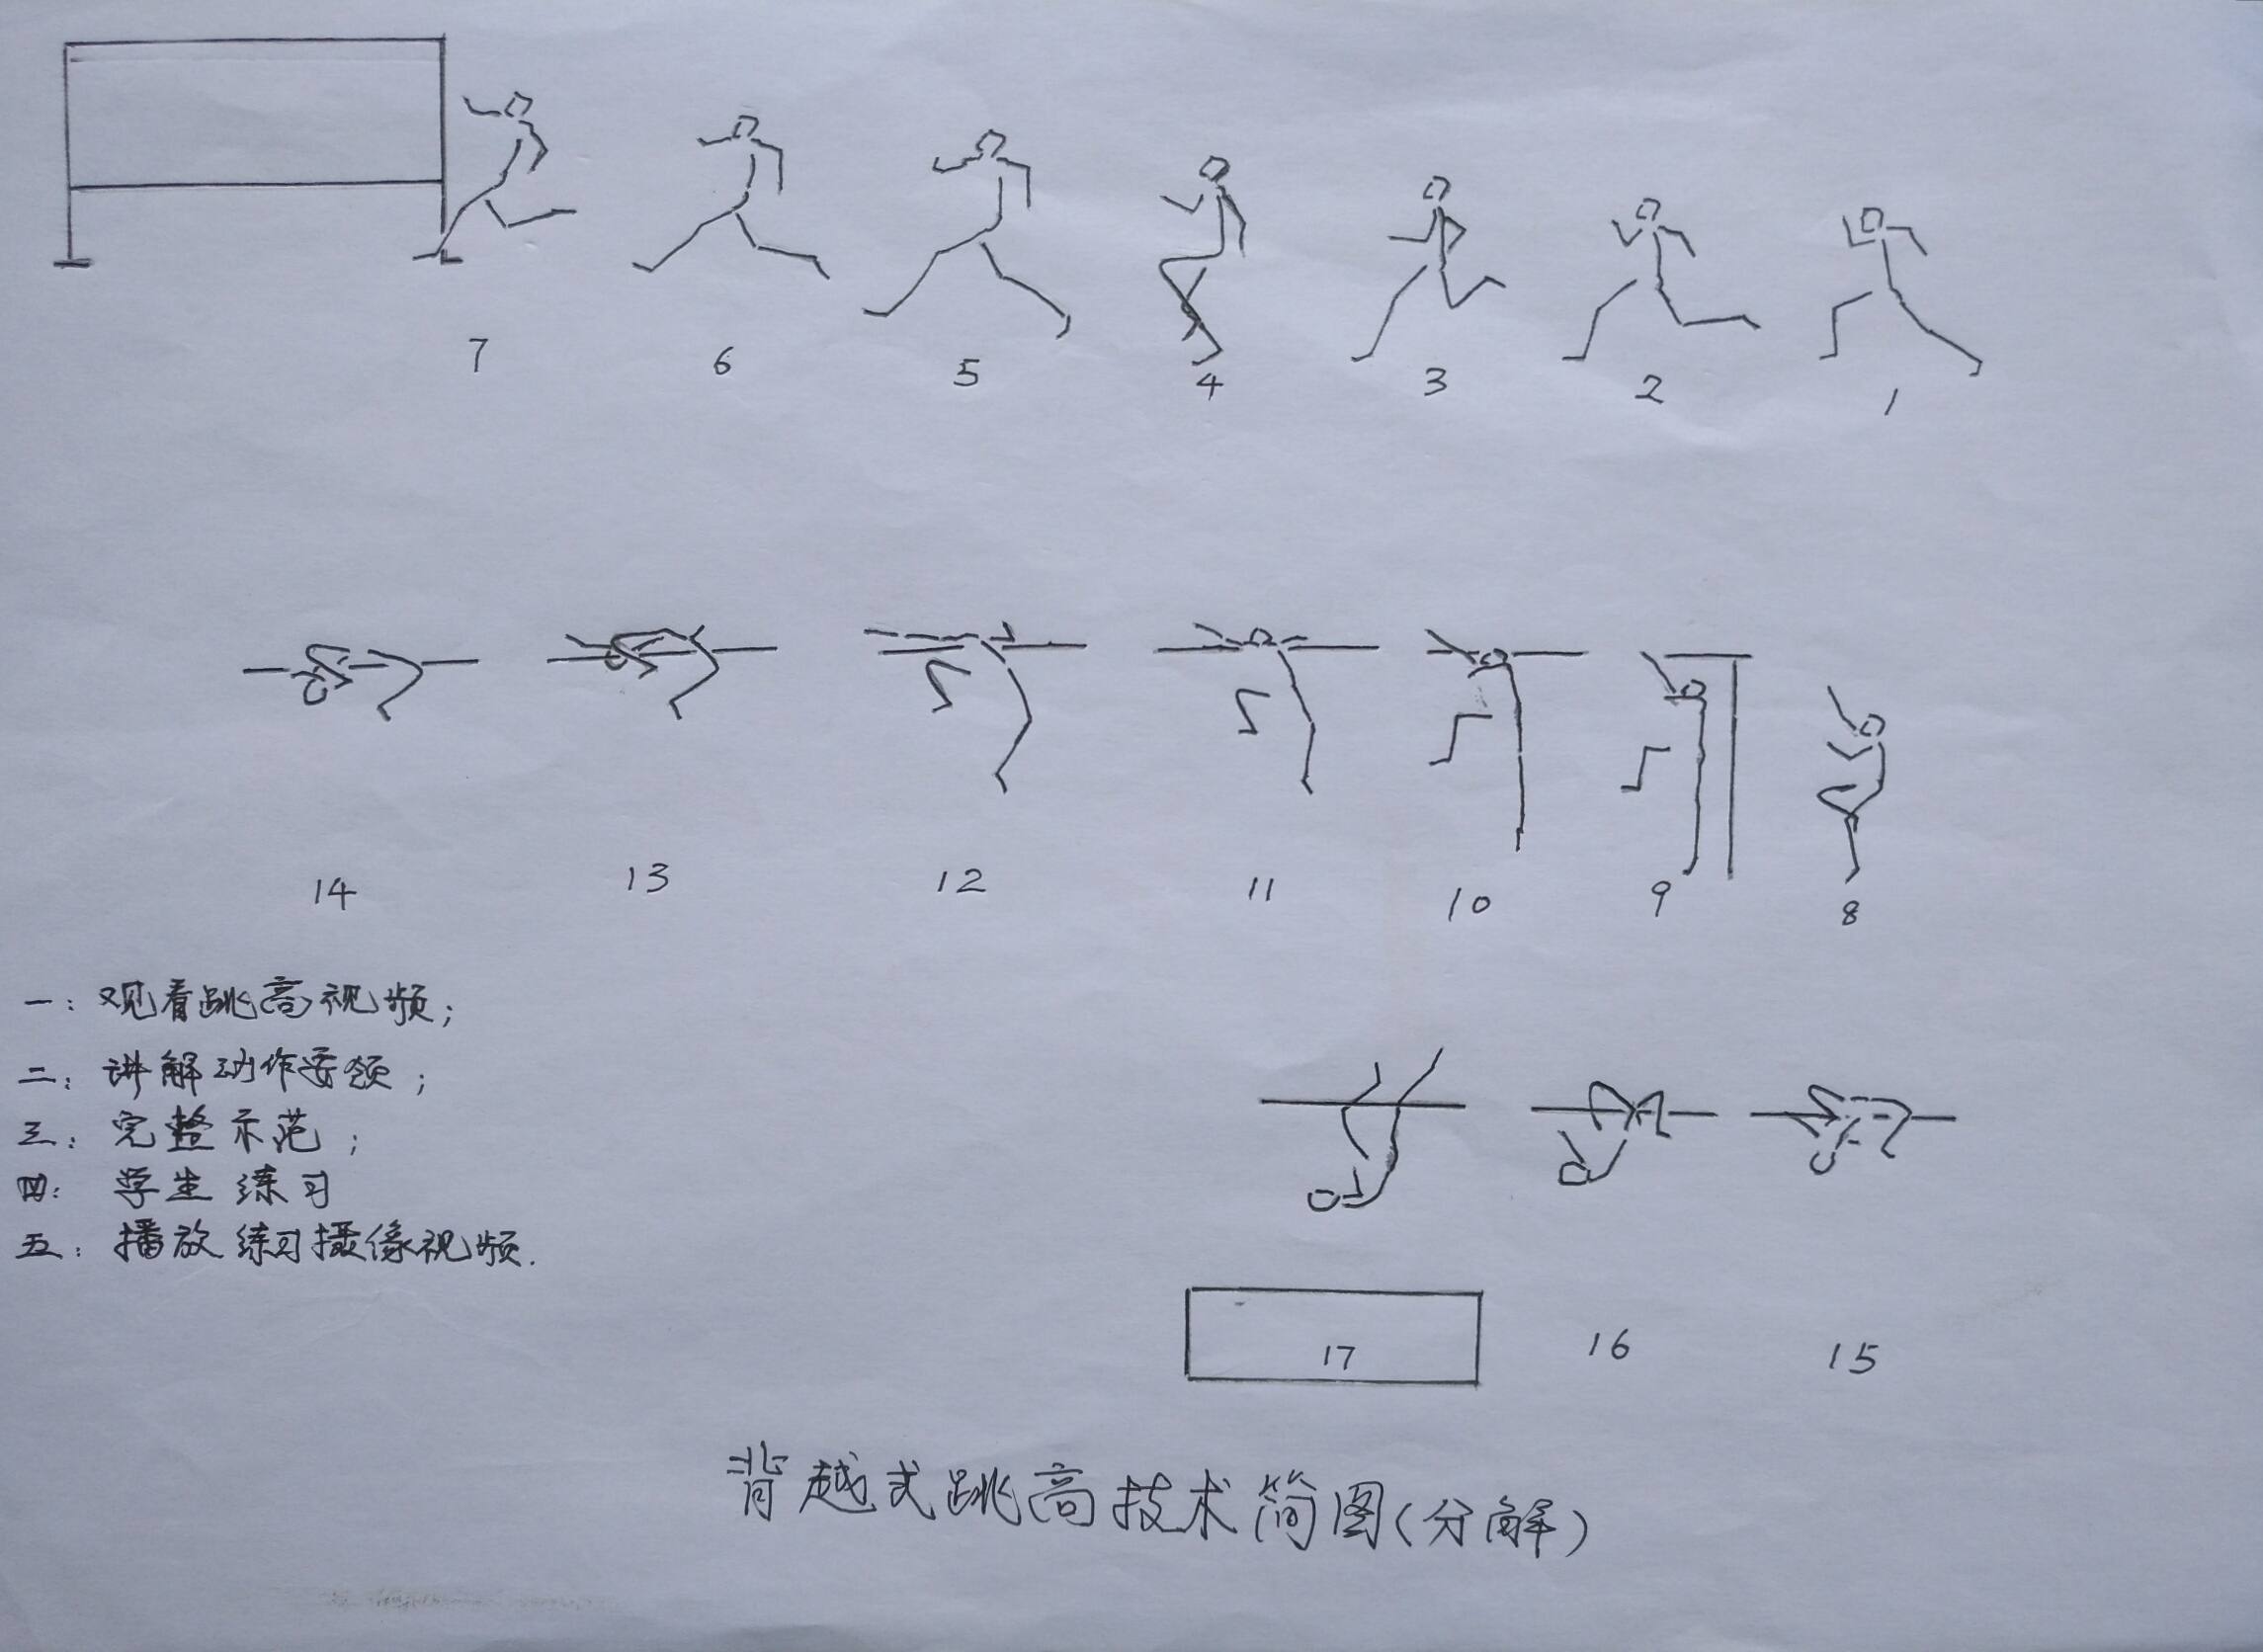 7 6 5 4 3 2 1
14 13 12 11 10 9 8
一：观看跳高视频；
二：讲解动作要领；
三：完整示范；
四：学生练习
五：播放练习摄像视频.
17 16 15
背越式跳高技术简图(分解)